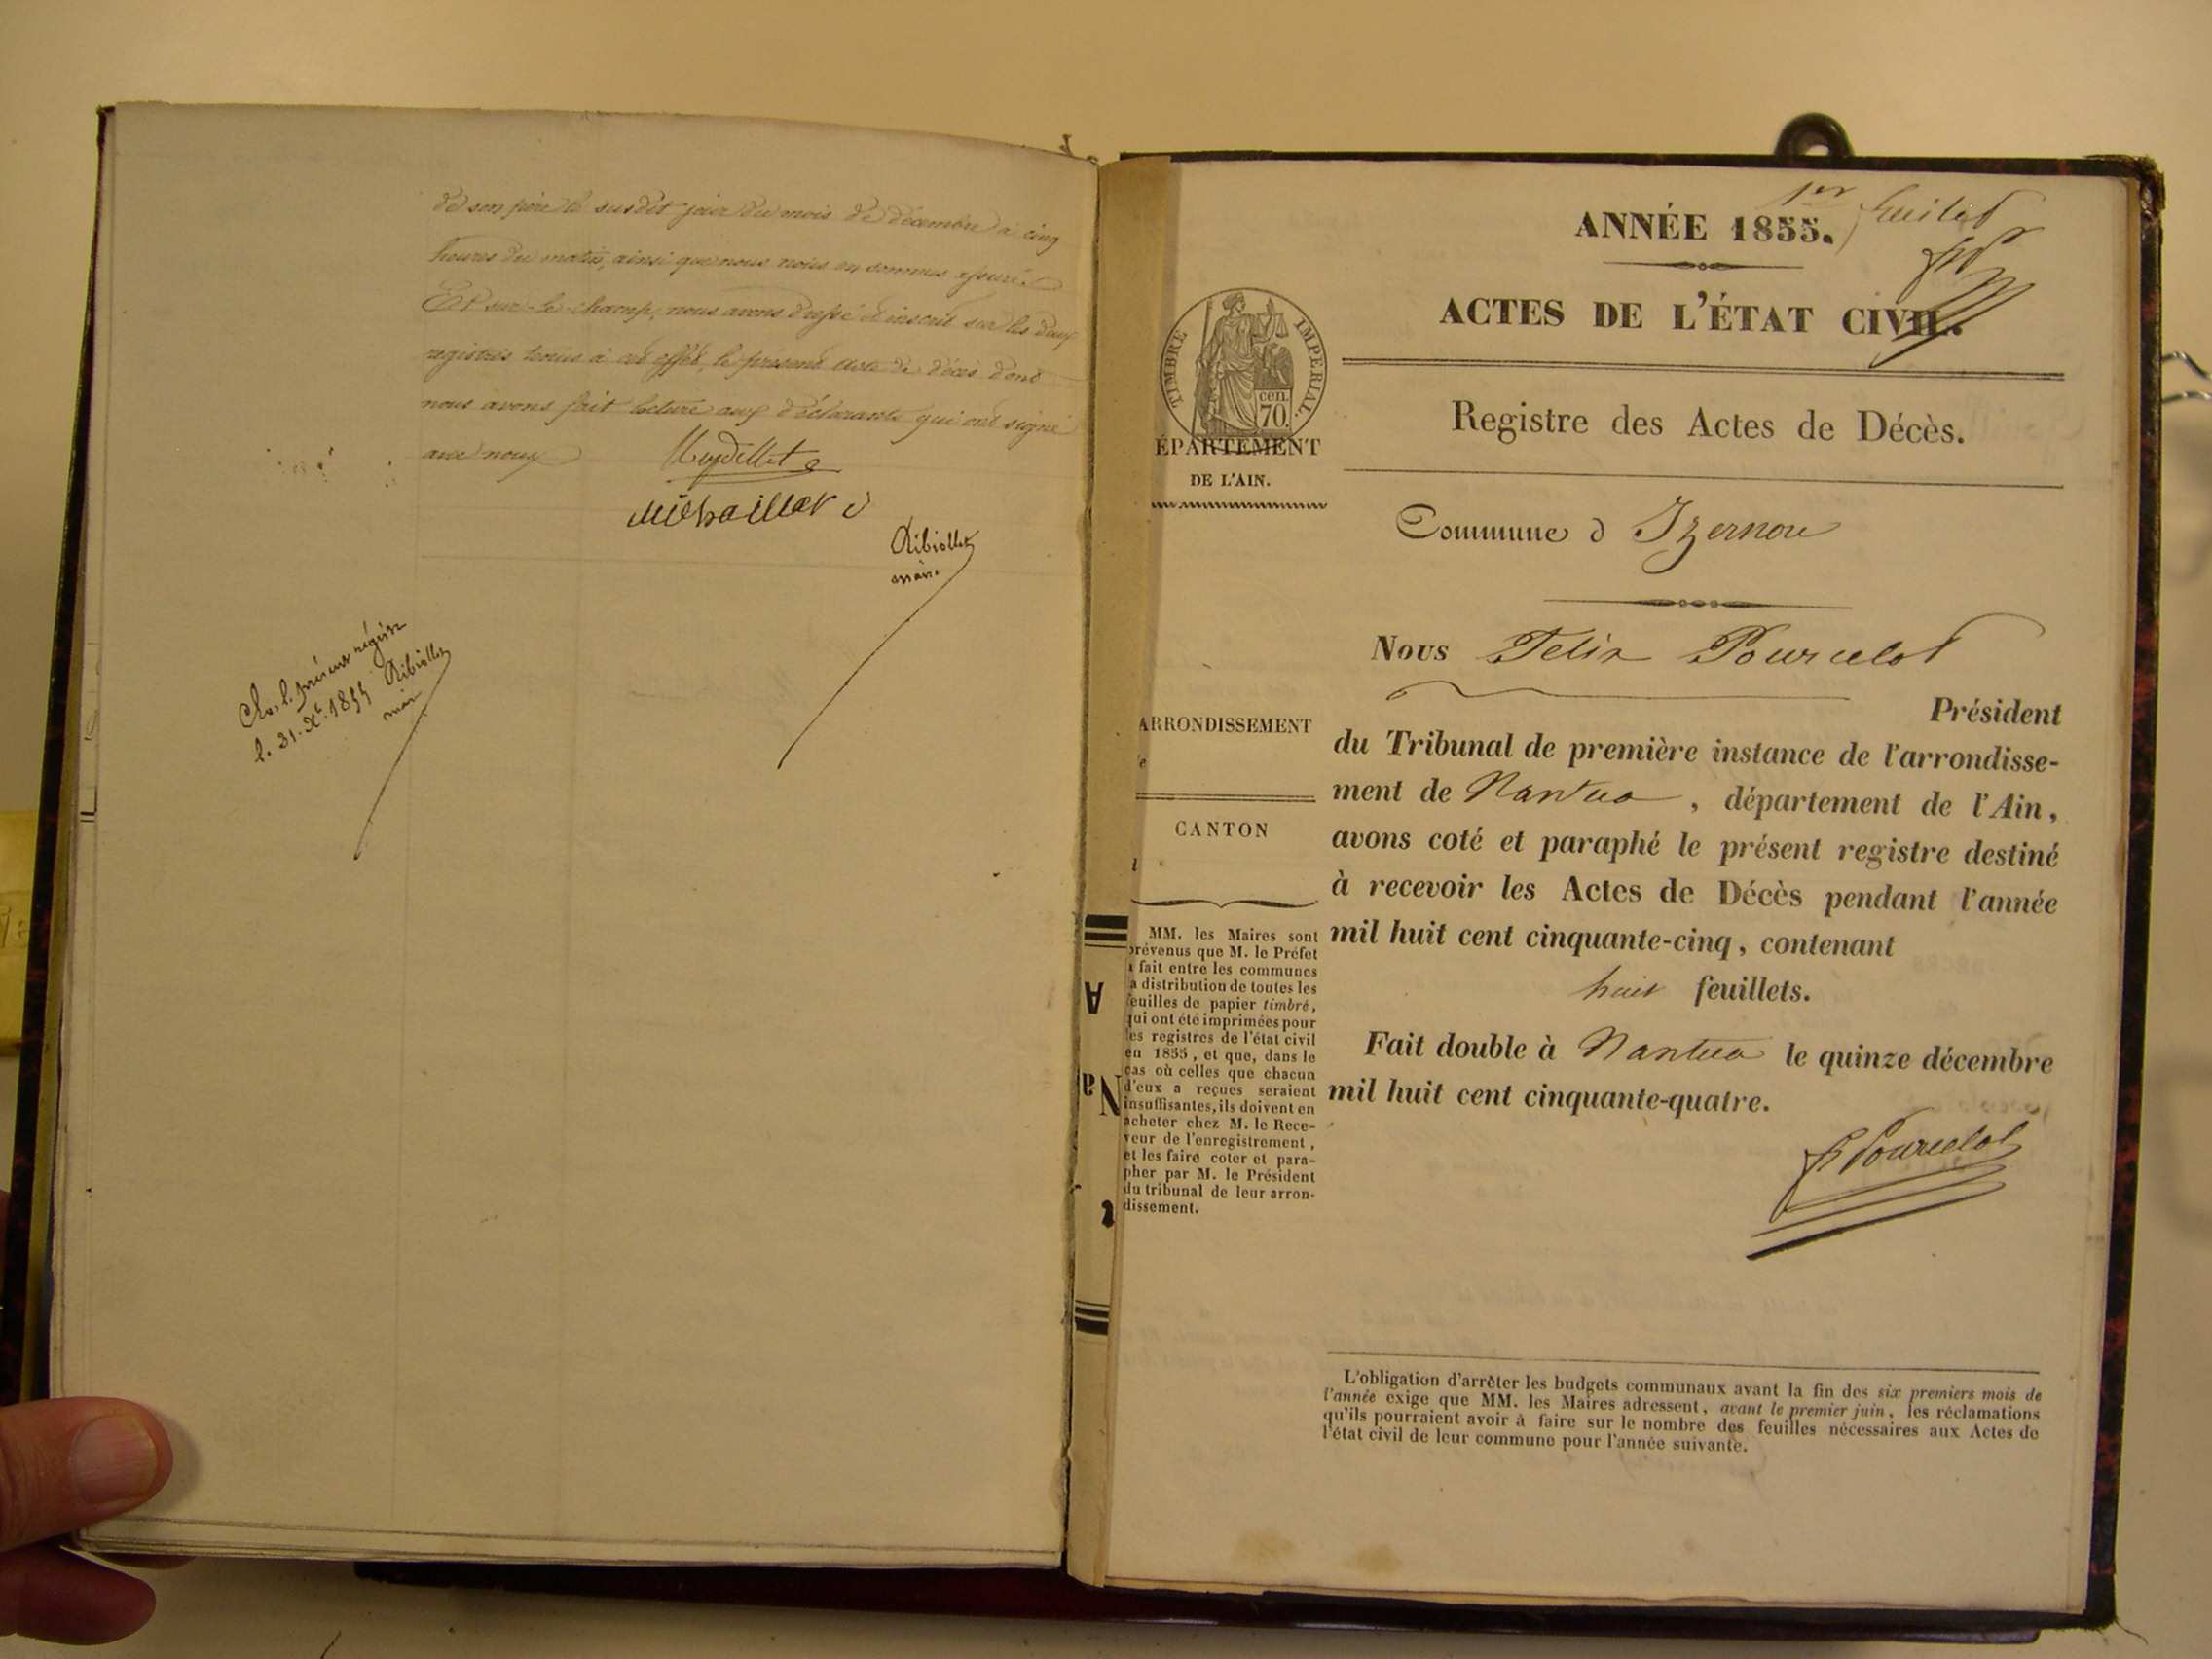 de son père le susdit jour du mois de décembre à cinq
heures du matin, ainsi que nous nous en sommes assuré.
Et sur-le-champ, nous avons dressé et inscrit sur les deux
registres tenus à cet effet, le présent acte de décès dont
nous avons fait lecture aux déclarants qui ont signé
avec nous
Ribiollet
maire
Clos le présent régistre
le 31 Xbre 1854 Ribiollet
maire
1er feuillet
ANNÉE 1855.
ACTES DE L'ÉTAT CIVIL.
TIMBRE IMPERIAL.
CEN.
70.
ÉPARTEMENT
DE L'AIN.
Registre des Actes de Décès.
Commune d Izernore
Nous Felix Pourcelot
Président
du Tribunal de première instance de l'arrondisse-
ment de Nantua, département de l'Ain,
avons coté et paraphé le présent registre destiné
à recevoir les Actes de Décès pendant l'année
mil huit cent cinquante-cinq, contenant
huit feuillets.
Fait double à Nantua le quinze décembre
mil huit cent cinquante-quatre.
F Pourcelot
ARRONDISSEMENT
CANTON
MM. les Maires sont
prévenus que M. le Préfet
a fait entre les communes
la distribution de toutes les
feuilles de papier timbré,
qui ont été imprimées pour
les registres de l'état civil
en 1855, et que, dans le
cas où celles que chacun
d'eux a reçues seraient
insuffisantes, ils doivent en
acheter chez M. le Rece-
veur de l'enregistrement,
et les faire coter et para-
pher par M. le Président
du tribunal de leur arron-
dissement.
L'obligation d'arrêter les budgets communaux avant la fin des six premiers mois de
l'année exige que MM. les Maires adressent, avant le premier juin, les réclamations
qu'ils pourraient avoir à faire sur le nombre des feuilles nécessaires aux Actes de
l'état civil de leur commune pour l'année suivante.